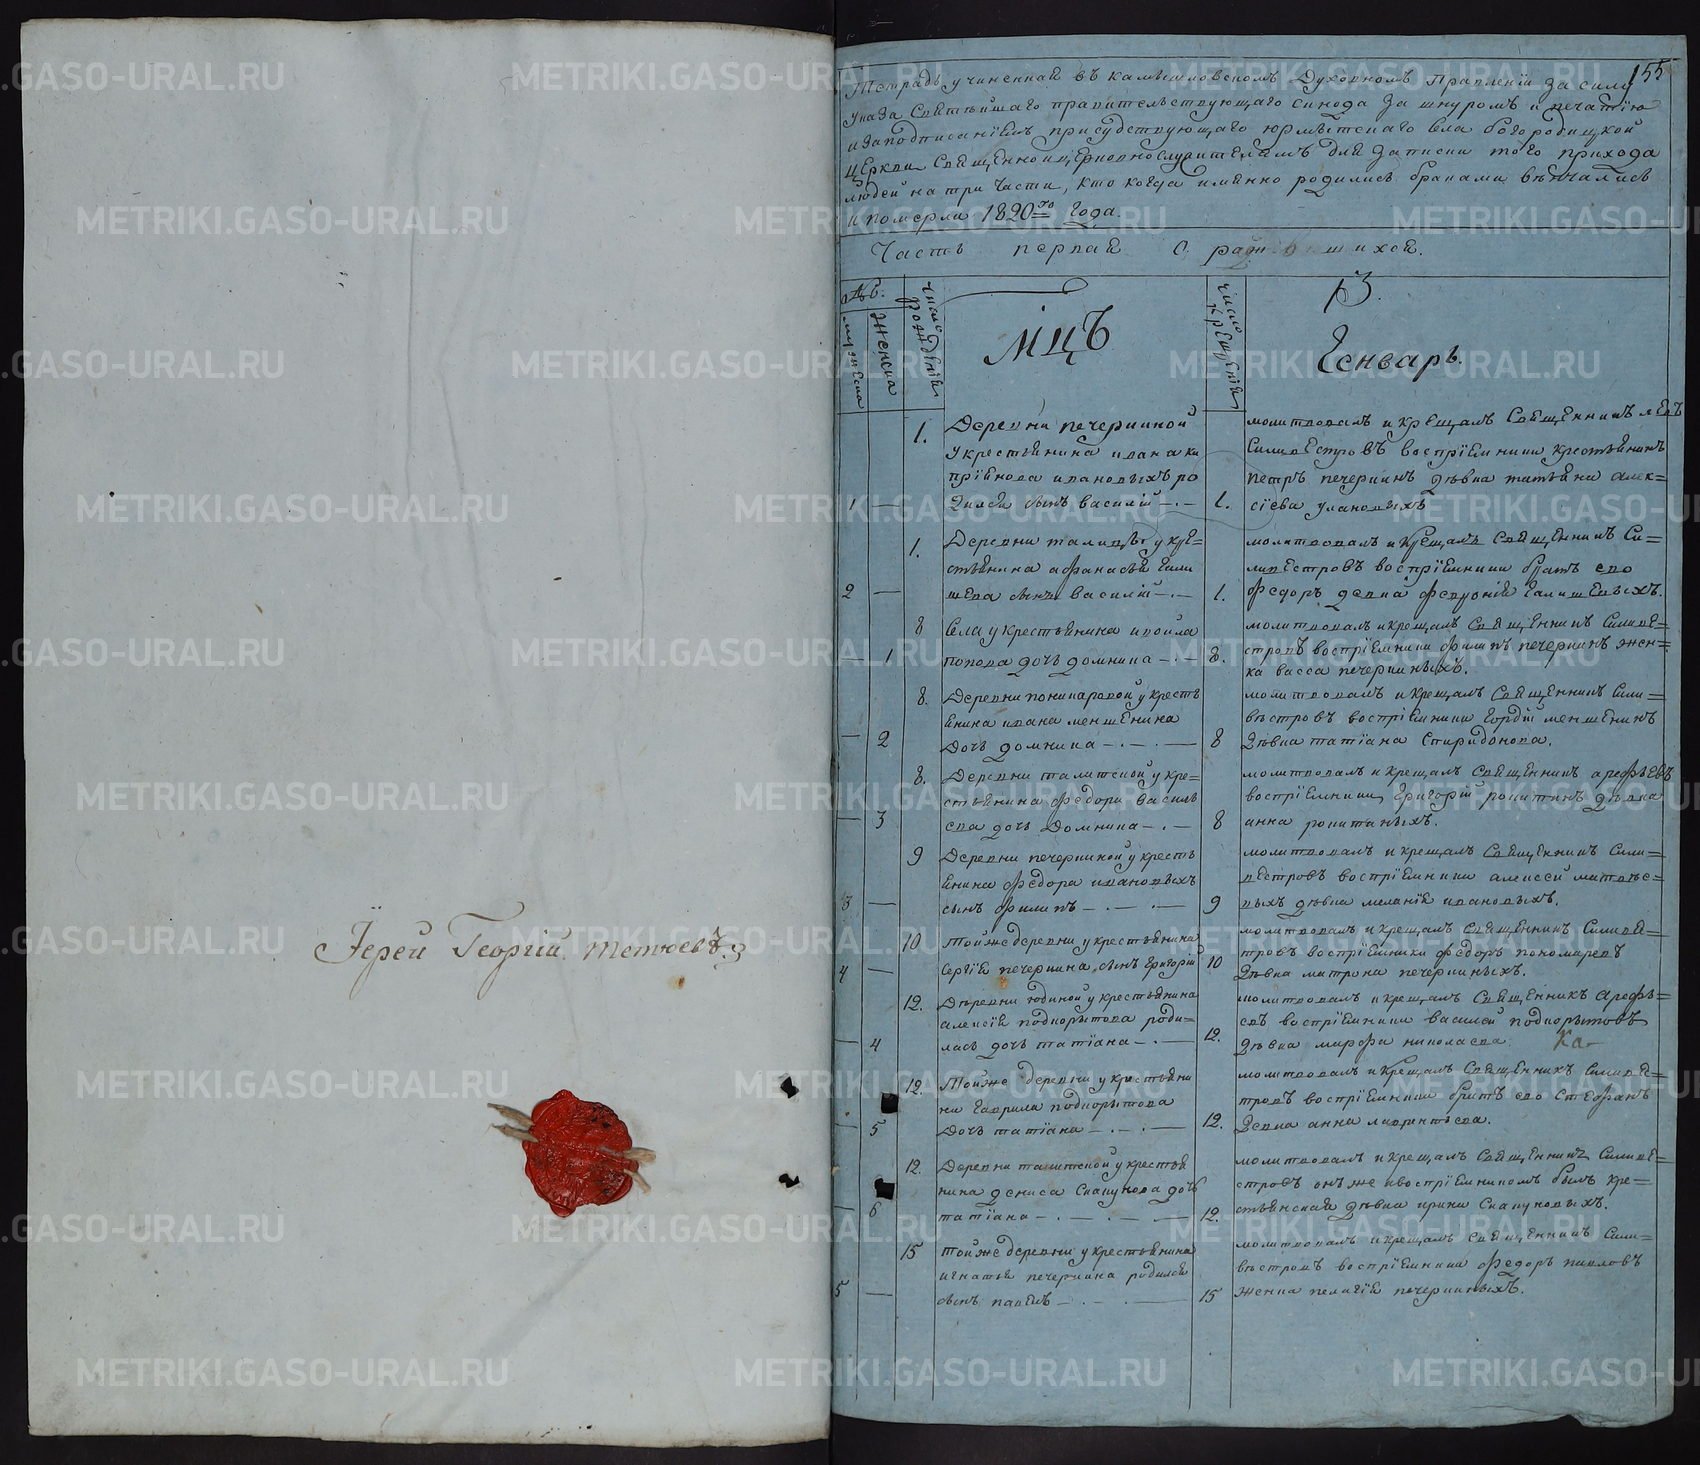 Іерей Георгій Тетюевъ
155
Тетрадь учиненная въ камышловскомъ Духовномъ Правленіи За силу
указа Святѣйшаго правительствующаго синода За шнуромъ и печатію
и заподписаніемъ присудствующаго юрмытскаго села богородицкой
церкви священноицерковнослужителямъ для записки того прихода
людей на три части, кто когда имянно родились браками вѣнчались
и померли 1820го года.
Часть первая О
мужеска
женска
число рожденія
Мцъ
число крещенія
Генварь.
1.
Деревни печеркиной
у крестьянина ивана ки
пріянова ивановыхъ ро
1 — дился сынъ василій —.—
1.
молитвовалъ и крещалъ священникъ левъ
Силивестровъ воспріемники крестьянинъ
петръ печеркинъ дѣвка татьяна алек=
сіева улановыхъ
1.
Деревни талицы у кре=
стьянина афанасья гали
2 — шева сынъ василій —.—
1.
молитвовалъ и крещалъ священникъ Си=
ливестровъ воспріемники братъ его
федоръ девка февронія галишевыхъ.
8
села у крестьянина
— 1 попова дочь домника —.—
8.
молитвовалъ и крещалъ священникъ Силиве=
стровъ воспріемники филипъ печеркинъ жен=
ка васса печеркиныхъ.
8.
Деревни понкнаровой у кресть
янина ивана меншенина
— 2 Дочь домника —.—.—
8
молитвовалъ и крещалъ священникъ Сили=
вестровъ воспріемники гордій меншенинъ
Дѣвка татіана Спиридонова.
8.
Деревни талитской у кре=
стьянина федора василь
— 3 ева дочь Домника —.—
8
молитвовалъ и крещалъ священникъ арефьевъ
воспріемники григорій
анна
9
Деревни печеркиной у кресть
янина федора ивановыхъ
3 — сынъ филипъ —.—.—
9
молитвовалъ и крещалъ священникъ Сили=
вестровъ воспріемники алексей матвѣе=
выхъ дѣвка меланія ивановыхъ.
10
Тойже деревни у крестьянина
4 — сергія печеркина сынъ григорій
10
молитвовалъ и крещалъ священникъ Силиве=
тровъ воспріемники федоръ пономаревъ
Дѣвка матрона печеркиныхъ.
12.
Деревни юдиной у крестьянина
алексія подкорытова роди=
— 4 лась дочь татіана —.—
12.
молитвовалъ и крещалъ священникъ арефь=
евъ воспріемники василей подкорытовъ
Дѣвка марфа николаева. Ка-
12.
Тойже деревни у крестьяни
на гаврила подкорытова
— 5 Дочь татіана —.—.—
12.
молитвовалъ и крещалъ священникъ Силиве=
тровъ воспріемники братъ его Стефанъ
Девка анна лаврентьева.
12.
Деревни талитской у крестья
нина дениса Скакунова дочь
— 6 татіана —.—.—
12.
молитвовалъ и крещалъ священникъ Силиве=
стровъ онъже ивоспріемникомъ былъ кре=
стьянская дѣвка ирина Скакуновыхъ.
15
тойже деревни у крестьянина
игнатья печеркина родился
5 — сынъ павелъ —.—.—
15
молитвовалъ и крещалъ священникъ Сили=
вестровъ воспріемники федоръ павловъ
женка пелагія печеркиныхъ.
METRIKI.GASO-URAL.RU